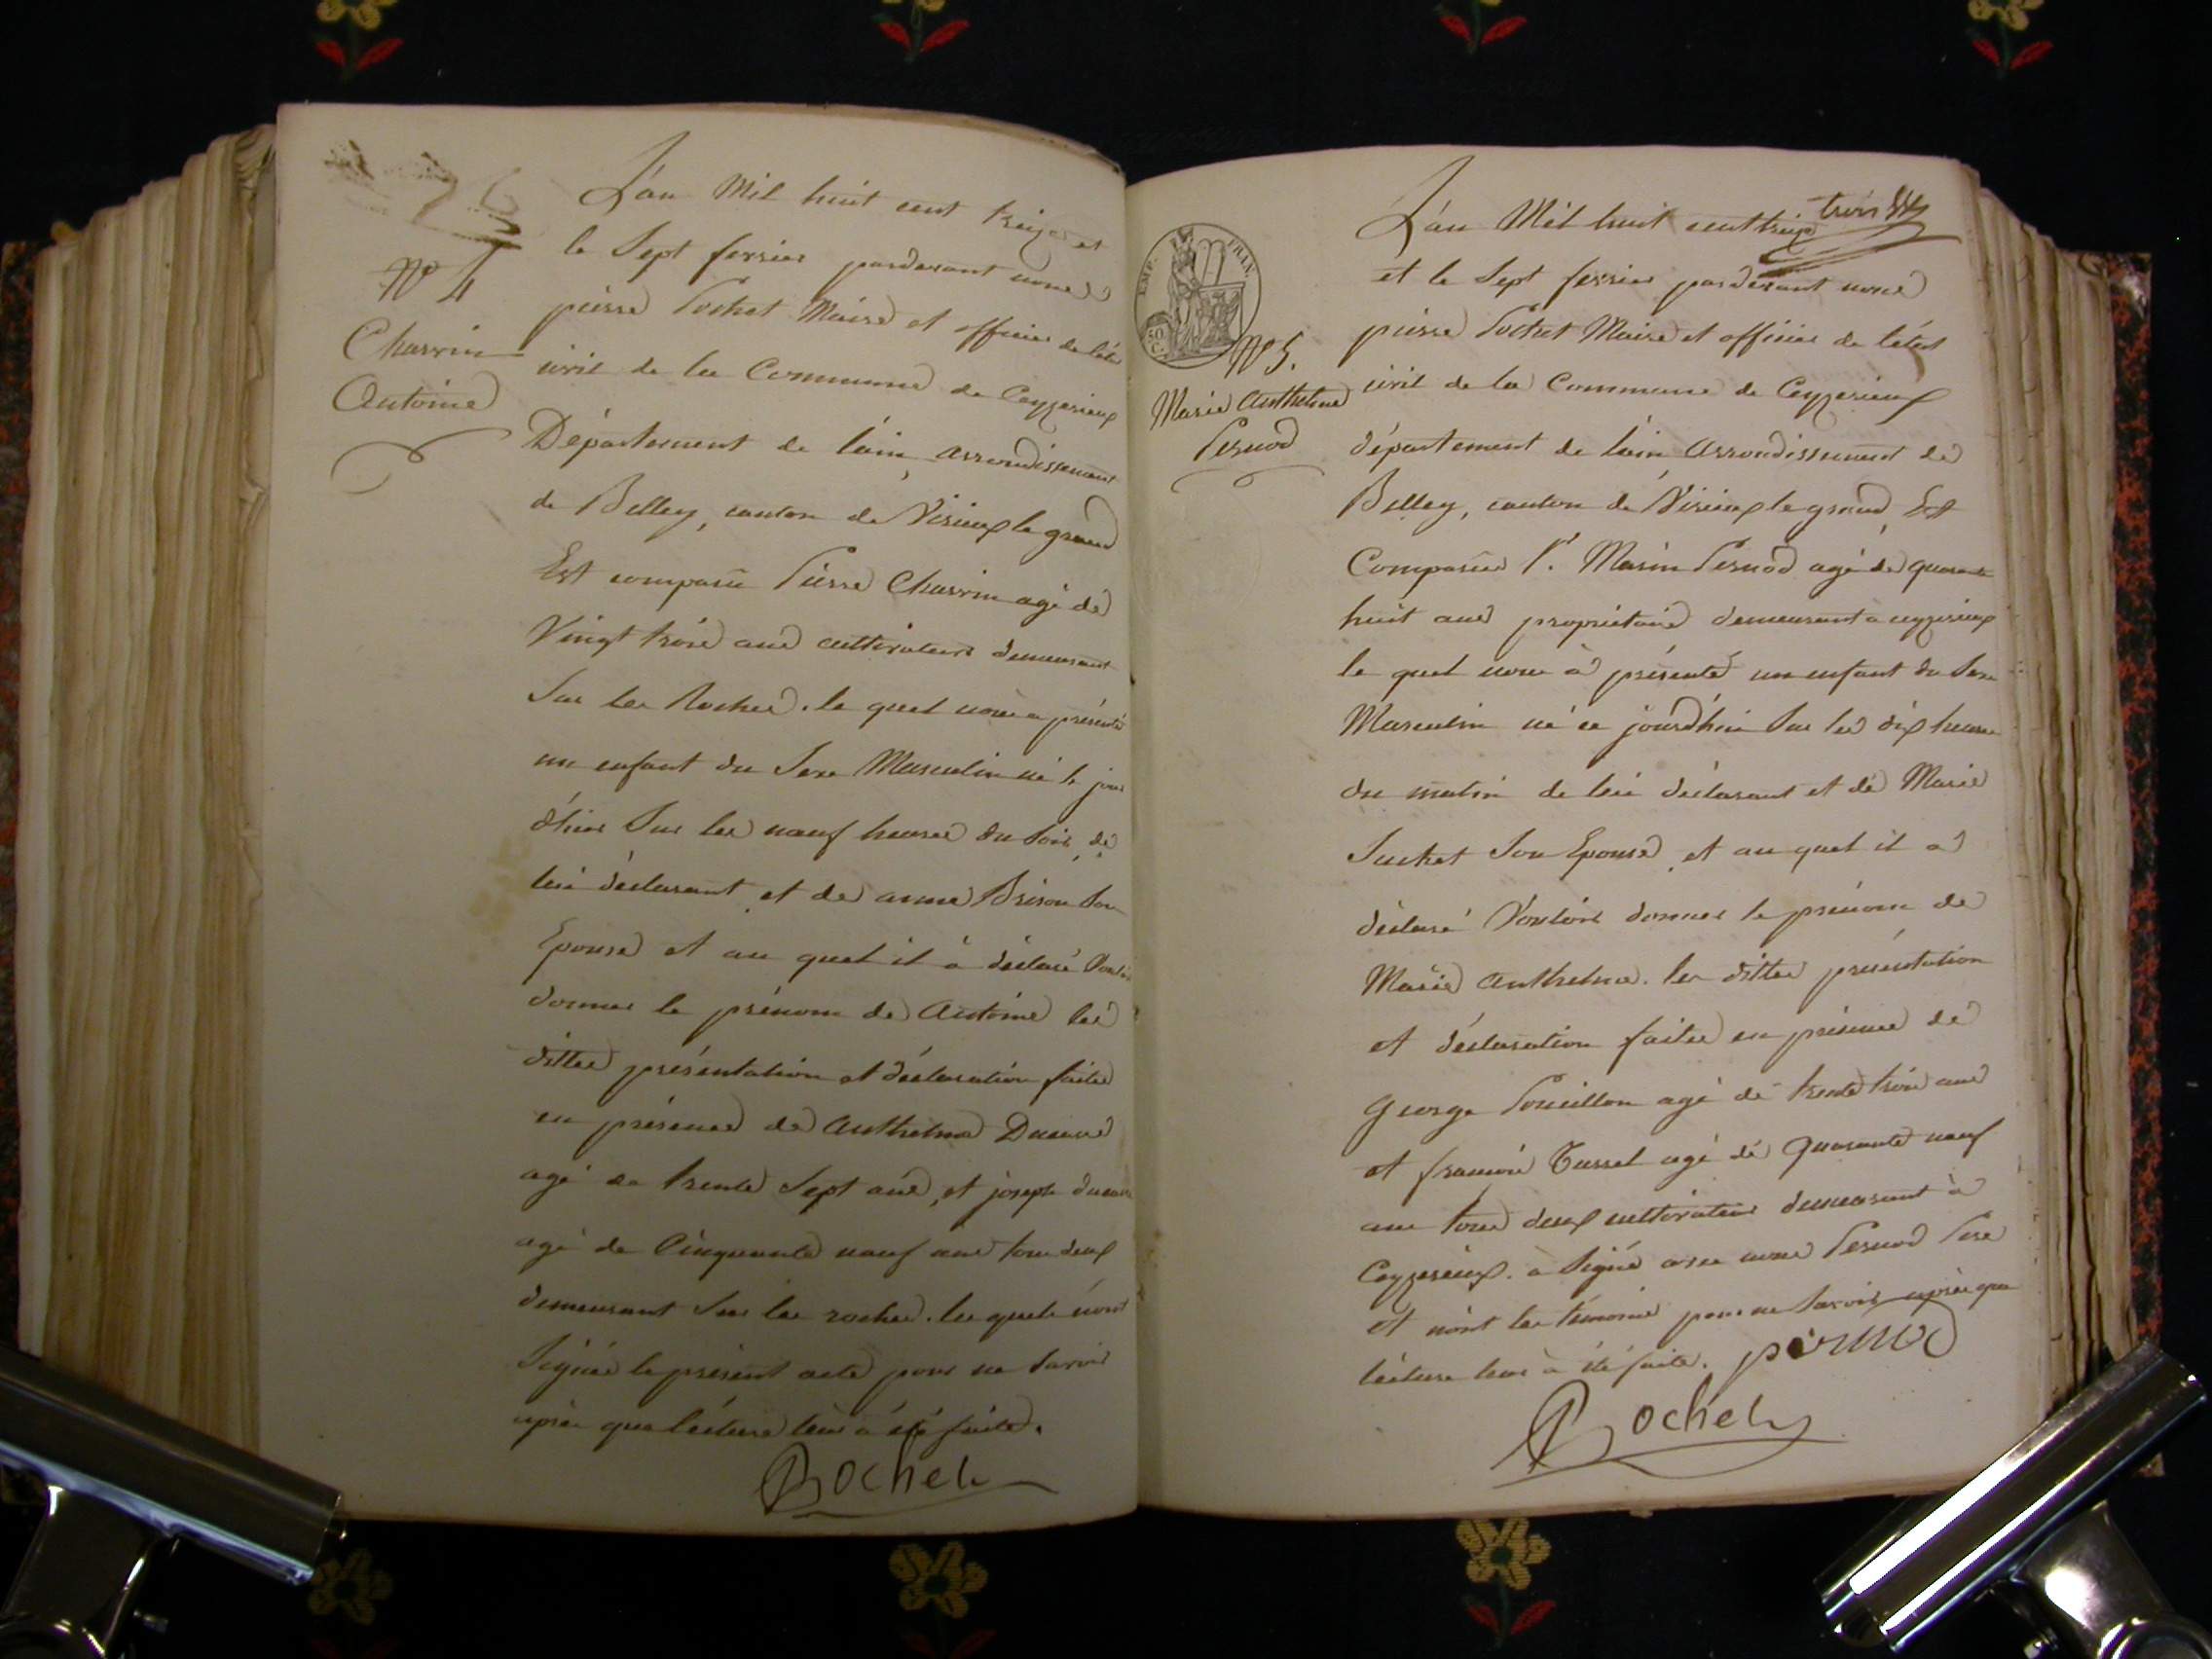 N° 4
Charvin
Antoine
L'an Mil huit cent treize et
le Sept fevrier pardevant nous
pierre Pochet Maire et officier de l'état
civil de la Commune de Ceyzerieux
Département de l'ain, arrondissement
de Belley, canton de Virieux le grand
Est comparu Pierre Charvin agé de
Vingt trois ans cultivateur demeurant
Sur les Roches. le quel nous a présenté
un enfant du Sexe Masculin né le jour
d'hier Sur les neuf heures du Soir, de
lui déclarant et de anne Brison Son
Epouse et au quel il à déclaré Vouloir
donner le prénom de Antoine les
dittes présentation et déclaration faites
en présence de Anthelme
agé de trente Sept ans, et joseph
agé de Cinquante neuf ans tous deux
demeurant Sur les roches. les quels n'ont
Signé le présent acte pour ne Savoir
après que lecture leur à été faite.
Pochet
trois
EMP. FRAN.
50 C.
N° 5.
Marie Anthelme
Pernod
L'an Mil huit cent treize
et le Sept fevrier pardevant nous
pierre Pochet Maire et officier de l'état
civil de la Commune de Ceyzerieux
département de l'ain Arrondissement de
Belley, canton de Virieux le grand, Est
Comparu Sr. Marin Pernod agé de quarante
huit ans propriétaire demeurant à ceyzerieux
le quel nous à présenté un enfant du Sexe
Masculin né ce jourd'hui Sur les dix heures
du matin de lui déclarant et de Marie
Suchet Son Epouse, et au quel il a
déclaré Vouloir donner le prénom de
Marie Anthelme. les dittes présentation
et déclaration faites en présence de
George Pouillon agé de trente trois ans
et françois agé de Quarante neuf
ans tous deux cultivateurs demeurant à
Ceyzerieux. à Signé avec nous Pernod Pere
et n'ont les témoins pour ne Savoir après que
lecture leur à été faite. pernod
Pochet